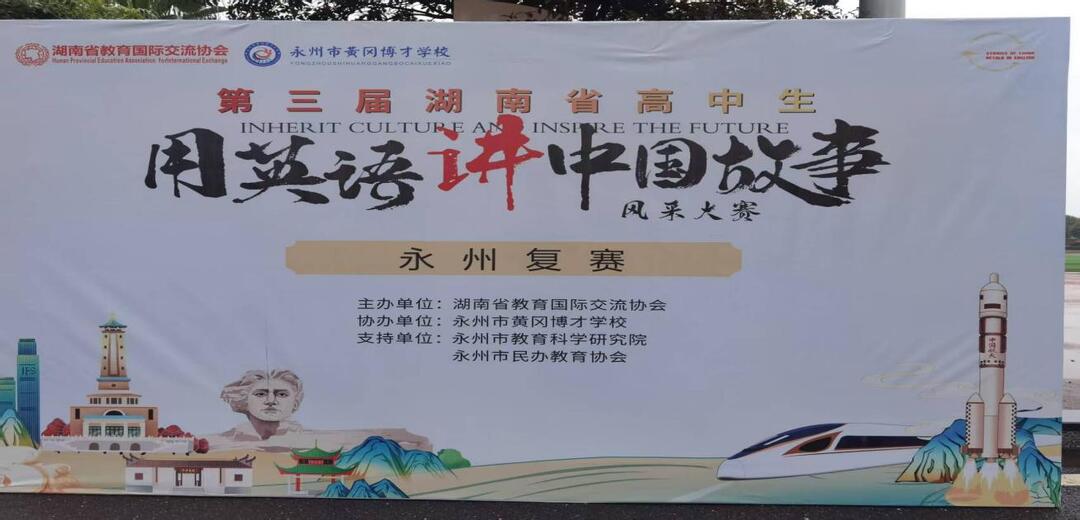 湖南省教育国际交流协会
Hunan Provincial Education Association ForInternational Exchange
永州市黄冈博才学校
YONGZHOUSHIHUANGGANGBOCAIXUEXIAO
STORIES OF CHINA
RETOLD IN ENGLISH
第三届湖南省高中生
INHERIT CULTURE AND INSPIRE THE FUTURE
用英语讲中国故事
风采大赛
永州复赛
主办单位：湖南省教育国际交流协会
协办单位：永州市黄冈博才学校
支持单位：永州市教育科学研究院
永州市民办教育协会
中国航天
IFS